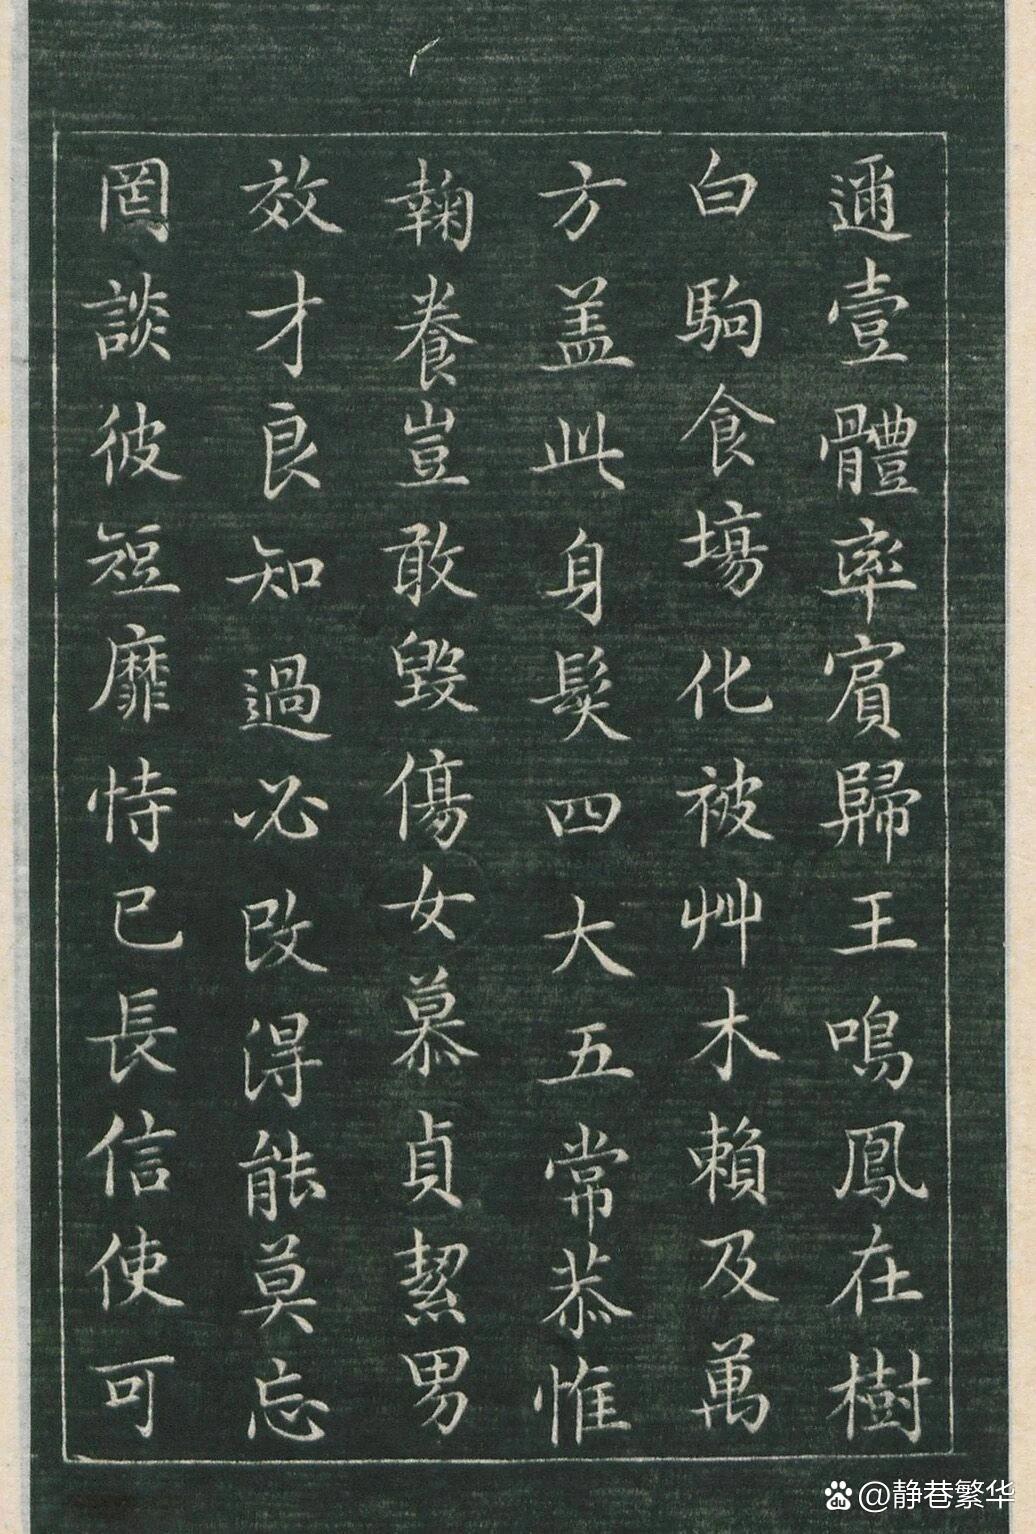 邇壹體率賓歸王鳴鳳在樹
白駒食場化被艸木賴及萬
方盖此身髮四大五常恭惟
鞠養豈敢毀傷女慕貞絜男
效才良知過必改得能莫忘
罔談彼短靡恃己長信使可
@静巷繁华